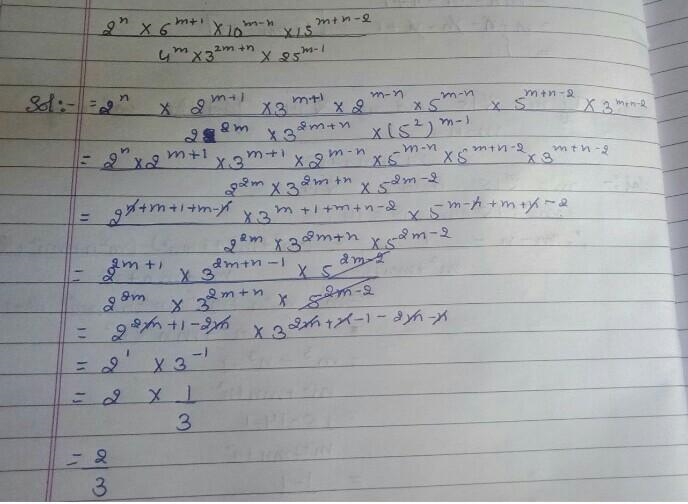 2^n × 6^{m+1} × 10^{m-n} × 15^{m+n-2}
4^m × 3^{2m+n} × 25^{m-1}
Sol:- = 2^n × 2^{m+1} × 3^{m+1} × 2^{m-n} × 5^{m-n} × 5^{m+n-2} × 3^{m+n-2}
2^{2m} × 3^{2m+n} × (5^2)^{m-1}
= 2^n × 2^{m+1} × 3^{m+1} × 2^{m-n} × 5^{m-n} × 5^{m+n-2} × 3^{m+n-2}
2^{2m} × 3^{2m+n} × 5^{2m-2}
= 2^{n+m+1+m-n} × 3^{m+1+m+n-2} × 5^{m-n+m+n-2}
2^{2m} × 3^{2m+n} × 5^{2m-2}
= 2^{2m+1} × 3^{2m+n-1} × 5^{2m-2}
2^{2m} × 3^{2m+n} × 5^{2m-2}
= 2^{2m+1-2m} × 3^{2m+n-1-2m-n}
= 2^1 × 3^{-1}
= 2 × 1
3
= 2
3